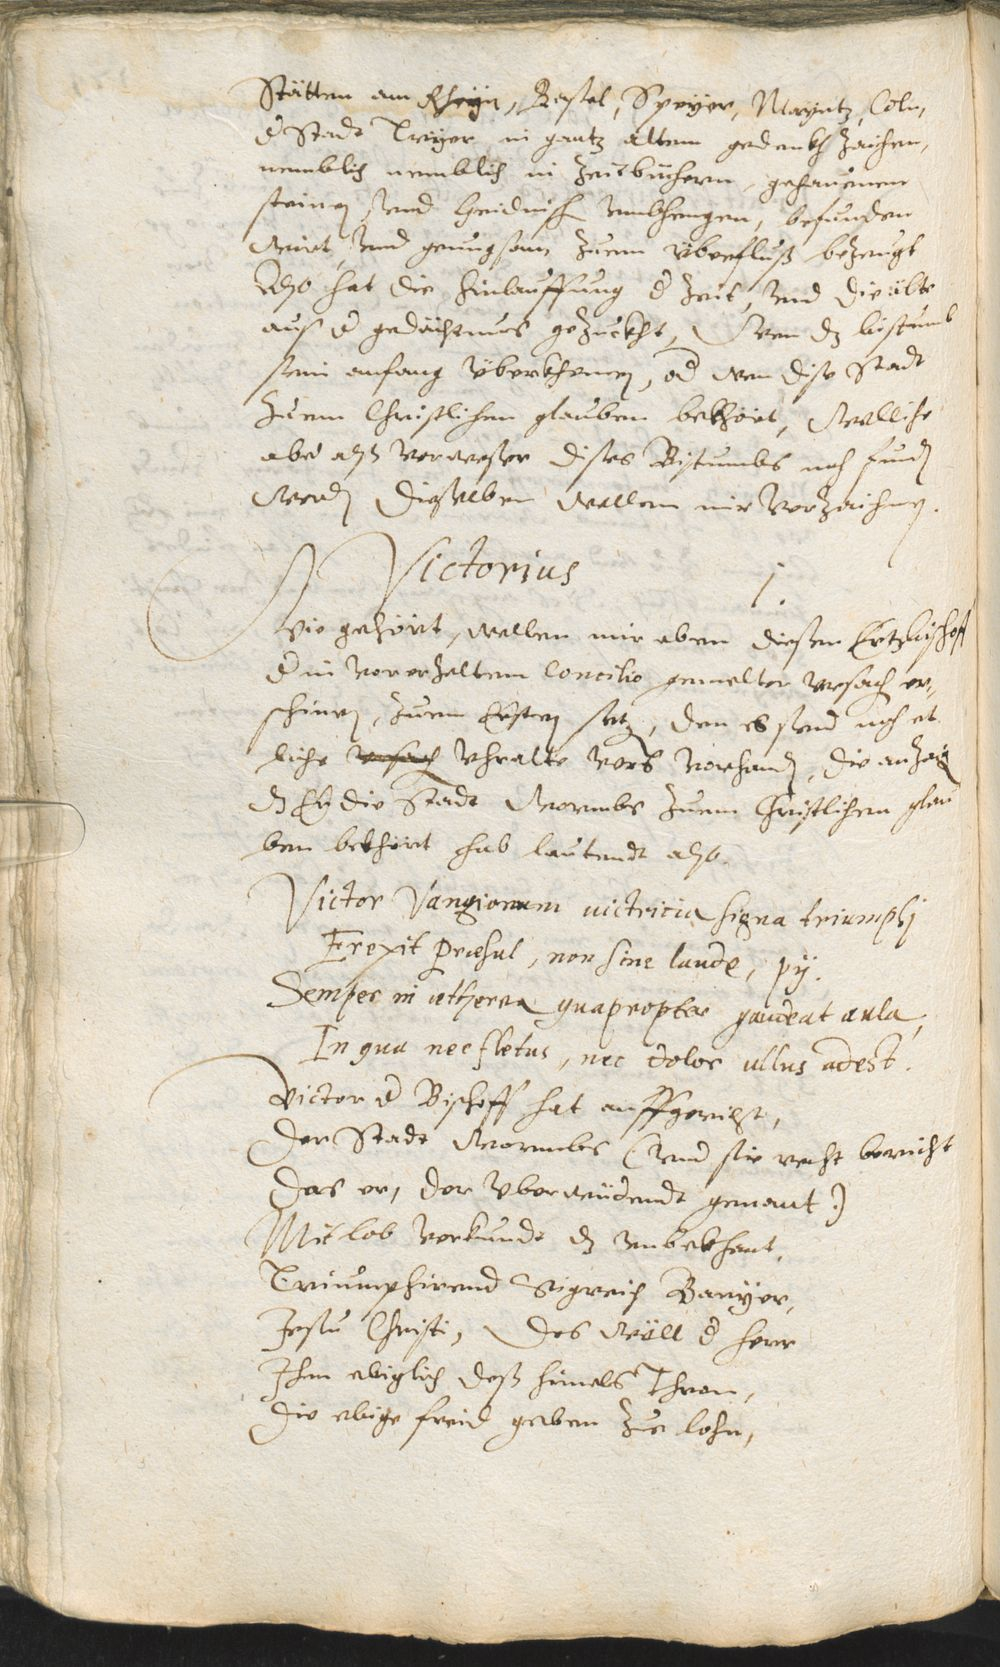 Stätten am Rheyn, Basel, Speyer, Mayntz, Cöln,
d Stadt Treyer in gantz altem gedenkh Zaichen,
nemblich nemblich in Zeitbüchern, gehauenen
steinen sond Heidnisch umbhengen, befunden
wirt, und genugsam zuem überfluß bezeugt
Also hat die hinlauffung d Zeit, und die älte
auß d gedächtnus gezuckht, Wen dz bistumb
sein anfang überkhomen, od wen dise Stadt
zuem Christlichen glauben bekhört, Welliche
aber alß verweser dises Bistumbs noch funden
werden dieselben wellen mir verzaichnen.
Victorius 1.
Wie gehört, wellen mir eben diesen Ertzbischoff
d in vorerzeltem Concilio gemelter ursach er-
schinen, zuem Ersten setz, den es send noch et
liche ursach uhralte vers vorhanden, die anzaigen
dz Er die Stadt Wormbs zuem Christlichen glau
ben bekhört hab lautendt also.
Victor Vangionum uictricia signa triumphj
Erexit Præsul, non sine laude, pÿ.
Semper in ætherea quapropter gaudeat aula,
In qua nec fletus, nec dolor ullus adest.
Victor d Bischoff hat auffgericht,
Der Stadt Wormbs (und sie recht bericht
Das er, der überwindendt genant.)
Mit lob verkundt dz unbekhant,
Triumphirend Sigreich Banÿer,
Jesu Christi, Des wöll d herr
Ihm ewiglich deß himels Thron,
Die ewige freid geben zue lohn,